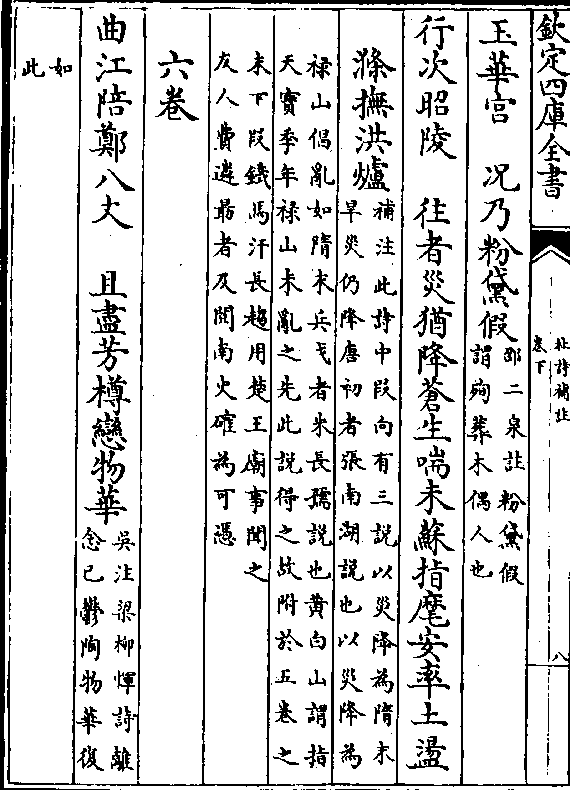 欽定四庫全書
杜詩補註
卷下
八
玉華宮　況乃粉黛假
邵二泉註粉黛假
謂殉葬木偶人也
行次昭陵　往者災猶降蒼生喘未蘇指麾安率土盪
滌撫洪爐
補注此詩中段向有三說以災降為隋末
旱災仍降唐初者張南湖說也以災降為
祿山倡亂如隋末兵戈者朱長孺說也黄白山謂指
天寶季年祿山未亂之先此說得之故附於五卷之
末下段鐵馬汗長趨用楚王廟事聞之
友人費遴葪者及閱南火確為可憑
六卷
曲江陪鄭八丈　且盡芳樽戀物華
吳注梁柳惲詩離
念已鬱陶物華復
如
此